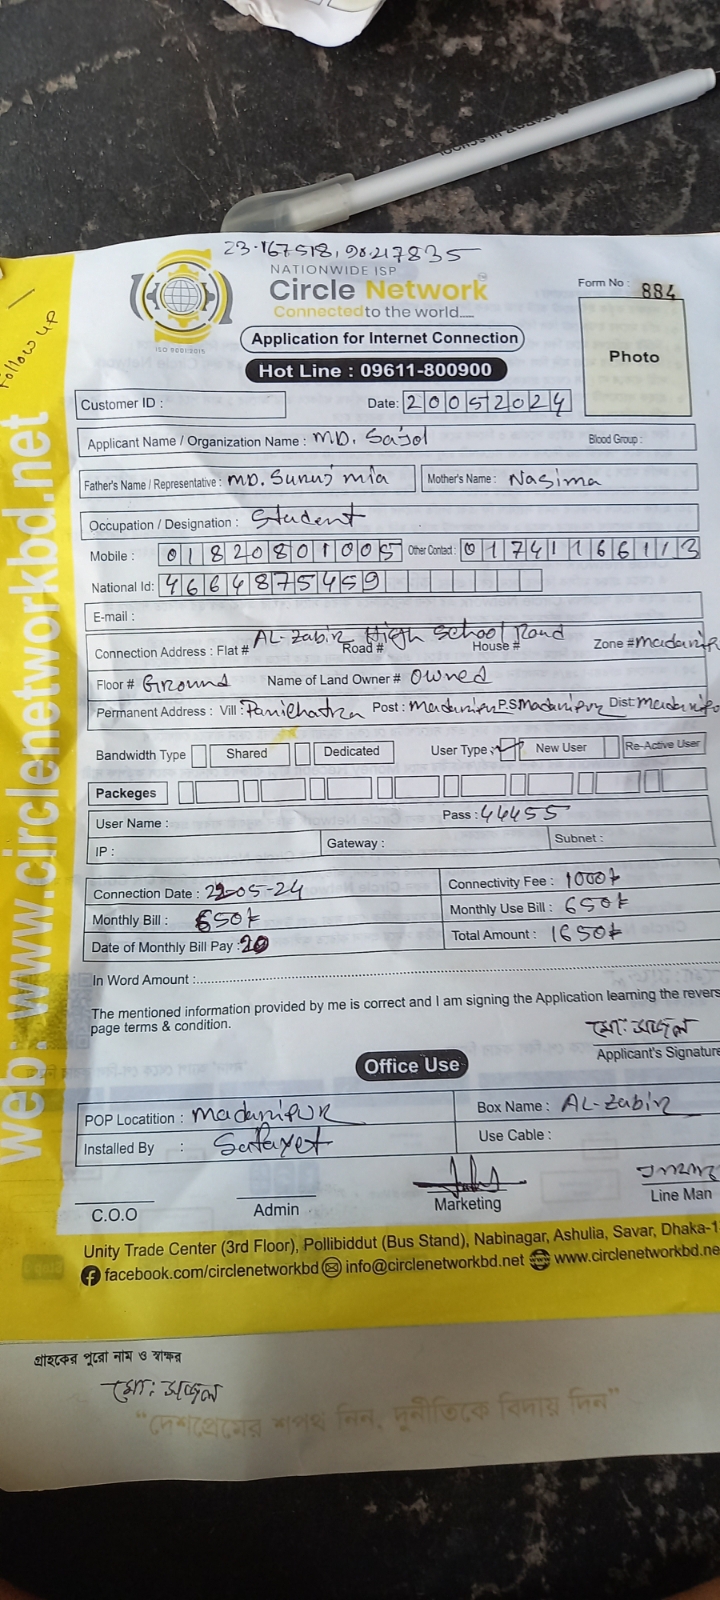 23.167518, 90.217835
NATIONWIDE ISP
Circle Network
Connected to the world.....
ISO 9001:2015
Form No : 884
Photo
Application for Internet Connection
Hot Line : 09611-800900
Follow up
web: www.circlenetworkbd.net
Customer ID :
Date: 20052024
Applicant Name / Organization Name : MD. Sajol Blood Group :
Father's Name / Representative : MD. Sunuj mia Mother's Name : Nasima
Occupation / Designation : Student
Mobile : 01820801005 Other Contact : 01741166113
National Id: 4664875459
E-mail :
Connection Address : Flat # AL-Zabir High School Road Road # House # Zone # Madaripur
Floor # Ground Name of Land Owner # Owned
Permanent Address : Vill : Panichatra Post : Madaripur P.S Madaripur Dist: Madaripu
Bandwidth Type Shared Dedicated User Type : New User Re-Active User
Packeges
User Name : Pass : 44455
IP : Gateway : Subnet :
Connection Date : 22-05-24 Connectivity Fee : 1000৳
Monthly Bill : 650৳ Monthly Use Bill : 650৳
Date of Monthly Bill Pay : 20 Total Amount : 1650৳
In Word Amount :
The mentioned information provided by me is correct and I am signing the Application learning the revers
page terms & condition.
মো: সজল
Applicant's Signature
Office Use
POP Locatition : Madaripur Box Name : AL-Zabir
Installed By : Safayet Use Cable :
C.O.O Admin Marketing Line Man
Unity Trade Center (3rd Floor), Pollibiddut (Bus Stand), Nabinagar, Ashulia, Savar, Dhaka-1
facebook.com/circlenetworkbd info@circlenetworkbd.net www.circlenetworkbd.ne
গ্রাহকের পুরো নাম ও স্বাক্ষর
মো: সজল
“দেশপ্রেমের শপথ নিন, দুর্নীতিকে বিদায় দিন”